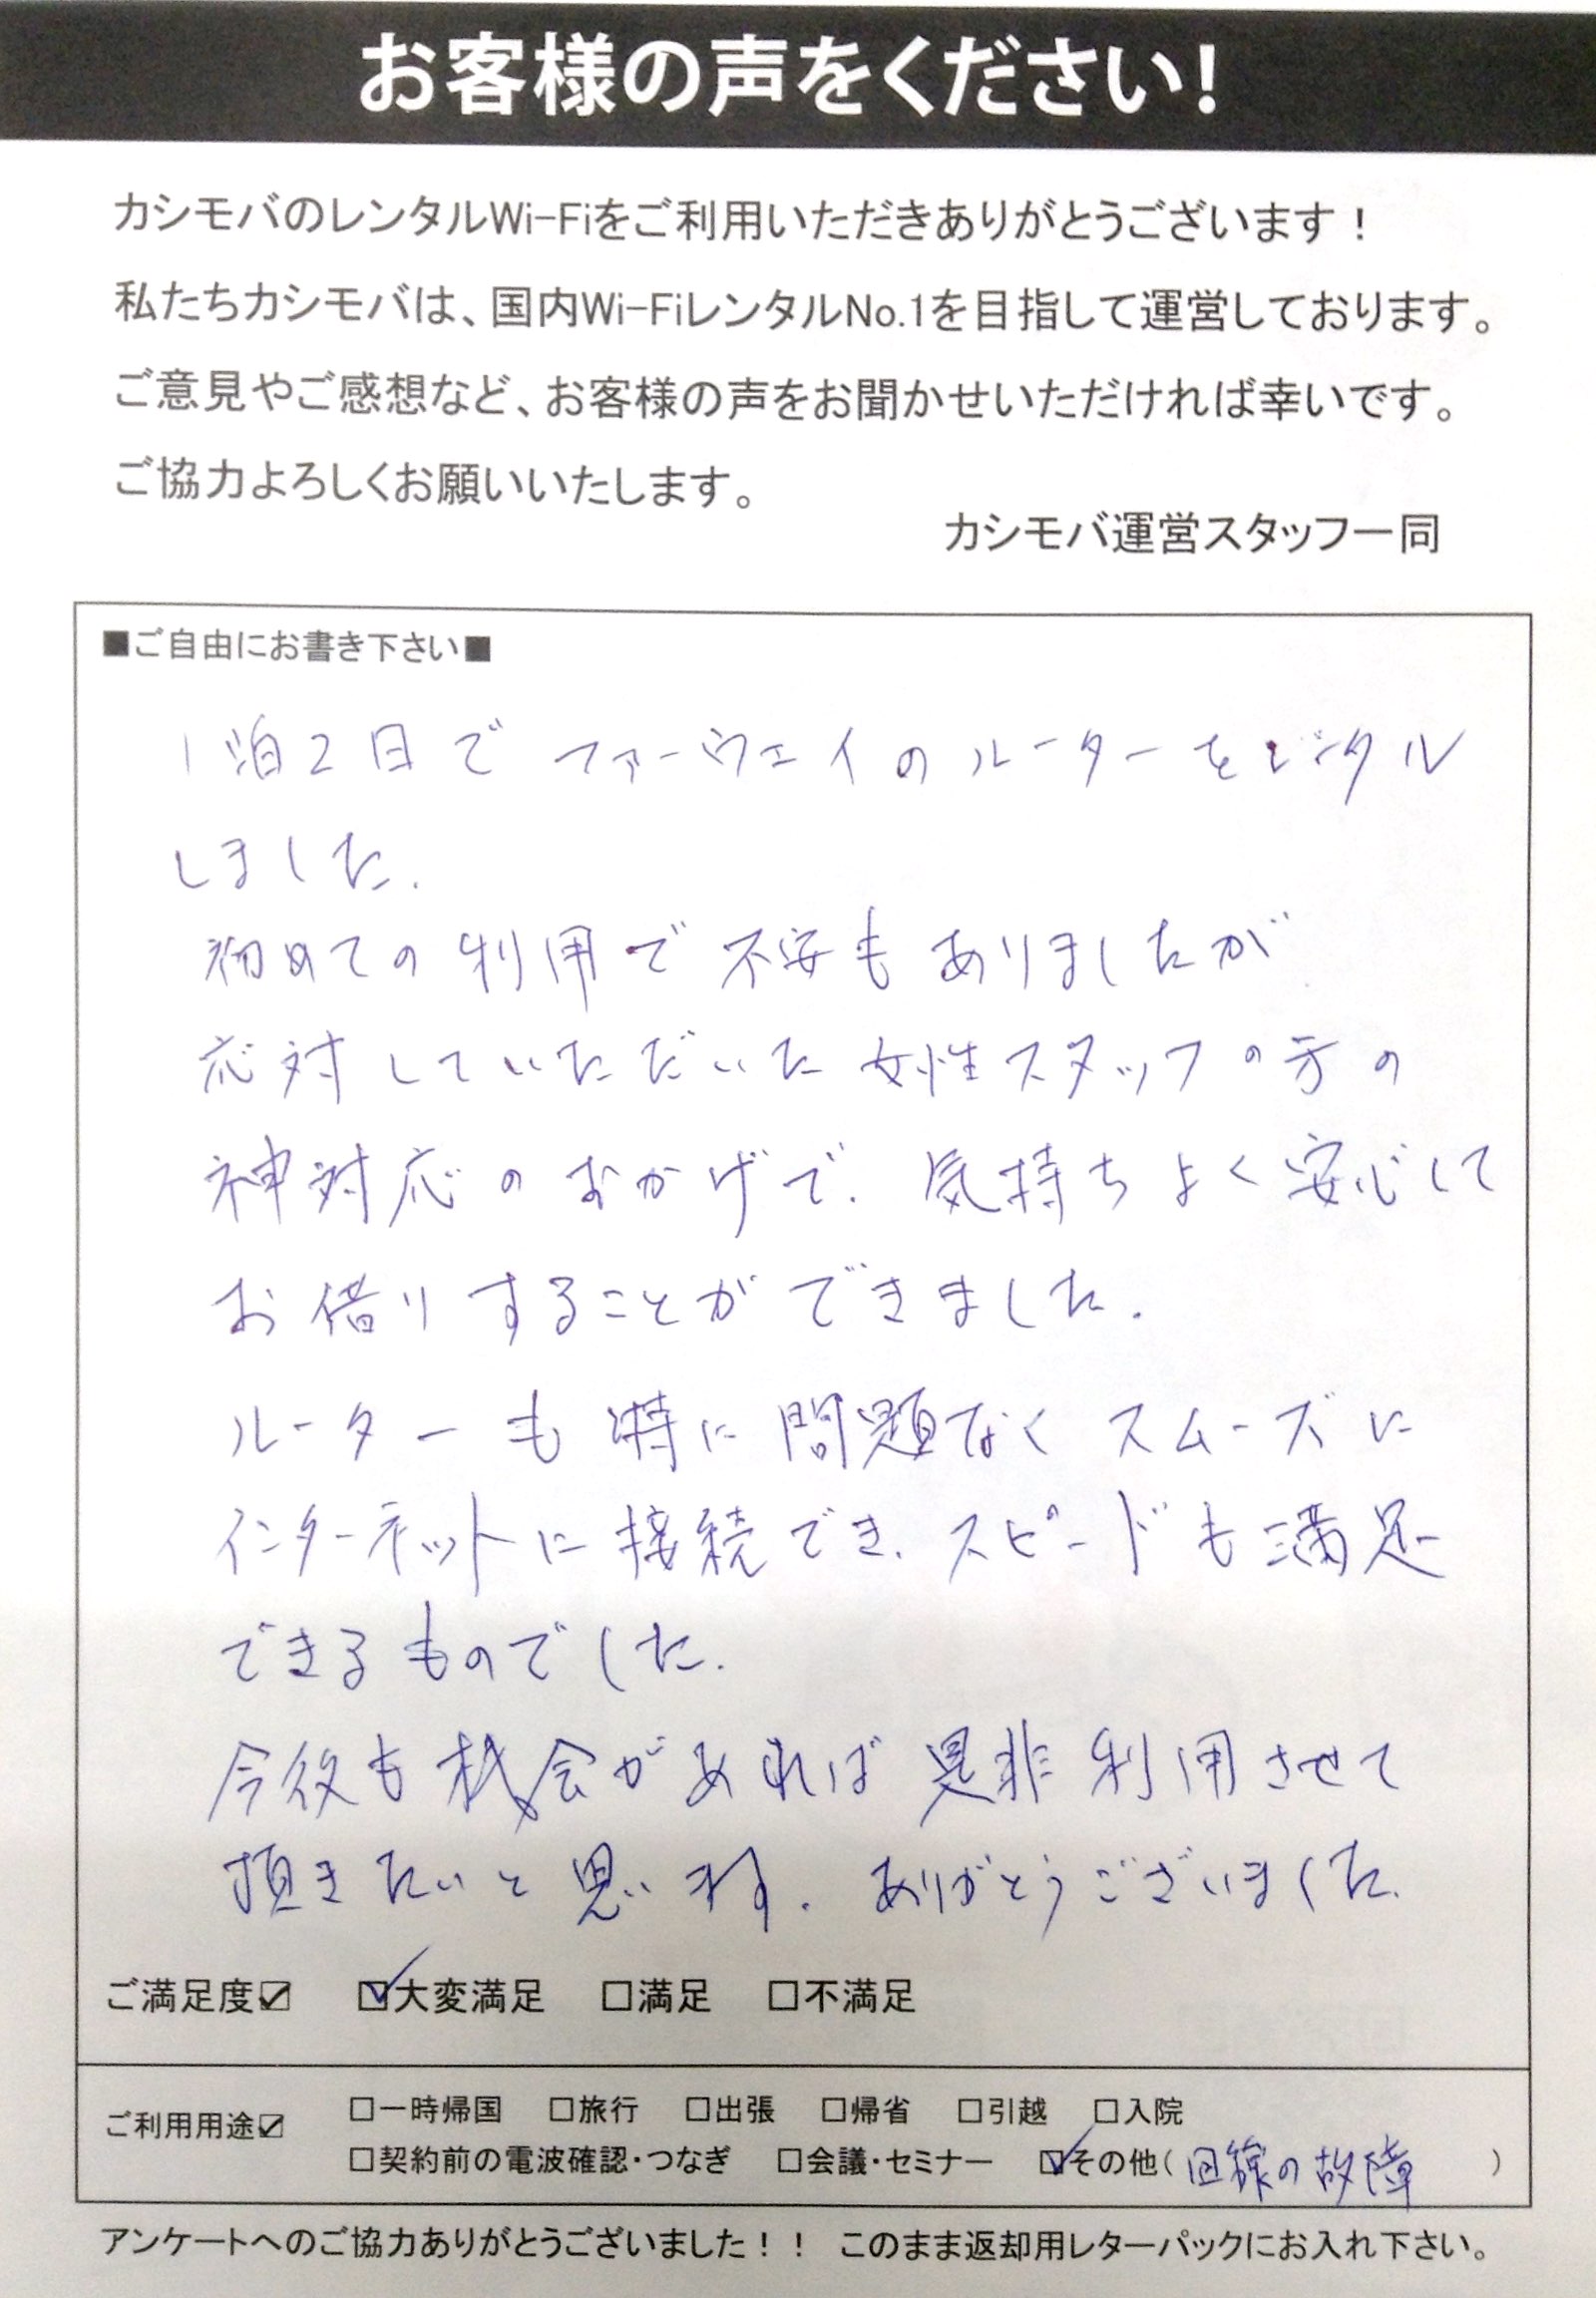 お客様の声をください!
カシモバのレンタルWi-Fiをご利用いただきありがとうございます！
私たちカシモバは、国内Wi-FiレンタルNo.1を目指して運営しております。
ご意見やご感想など、お客様の声をお聞かせいただければ幸いです。
ご協力よろしくお願いいたします。
カシモバ運営スタッフ一同
■ご自由にお書き下さい■
1泊2日でファーウェイのルーターをレンタル
しました.
初めての利用で不安もありましたが
応対していただいた女性スタッフの方の
神対応のおかげで、気持ちよく安心して
お借りすることができました.
ルーターも特に問題なくスムーズに
インターネットに接続でき、スピードも満足
できるものでした.
今後も機会があれば是非利用させて
頂きたいと思います. ありがとうございました.
ご満足度☑ ☑大変満足 □満足 □不満足
ご利用用途☑ □一時帰国 □旅行 □出張 □帰省 □引越 □入院
□契約前の電波確認・つなぎ □会議・セミナー ☑その他(回線の故障)
アンケートへのご協力ありがとうございました！！ このまま返却用レターパックにお入れ下さい。